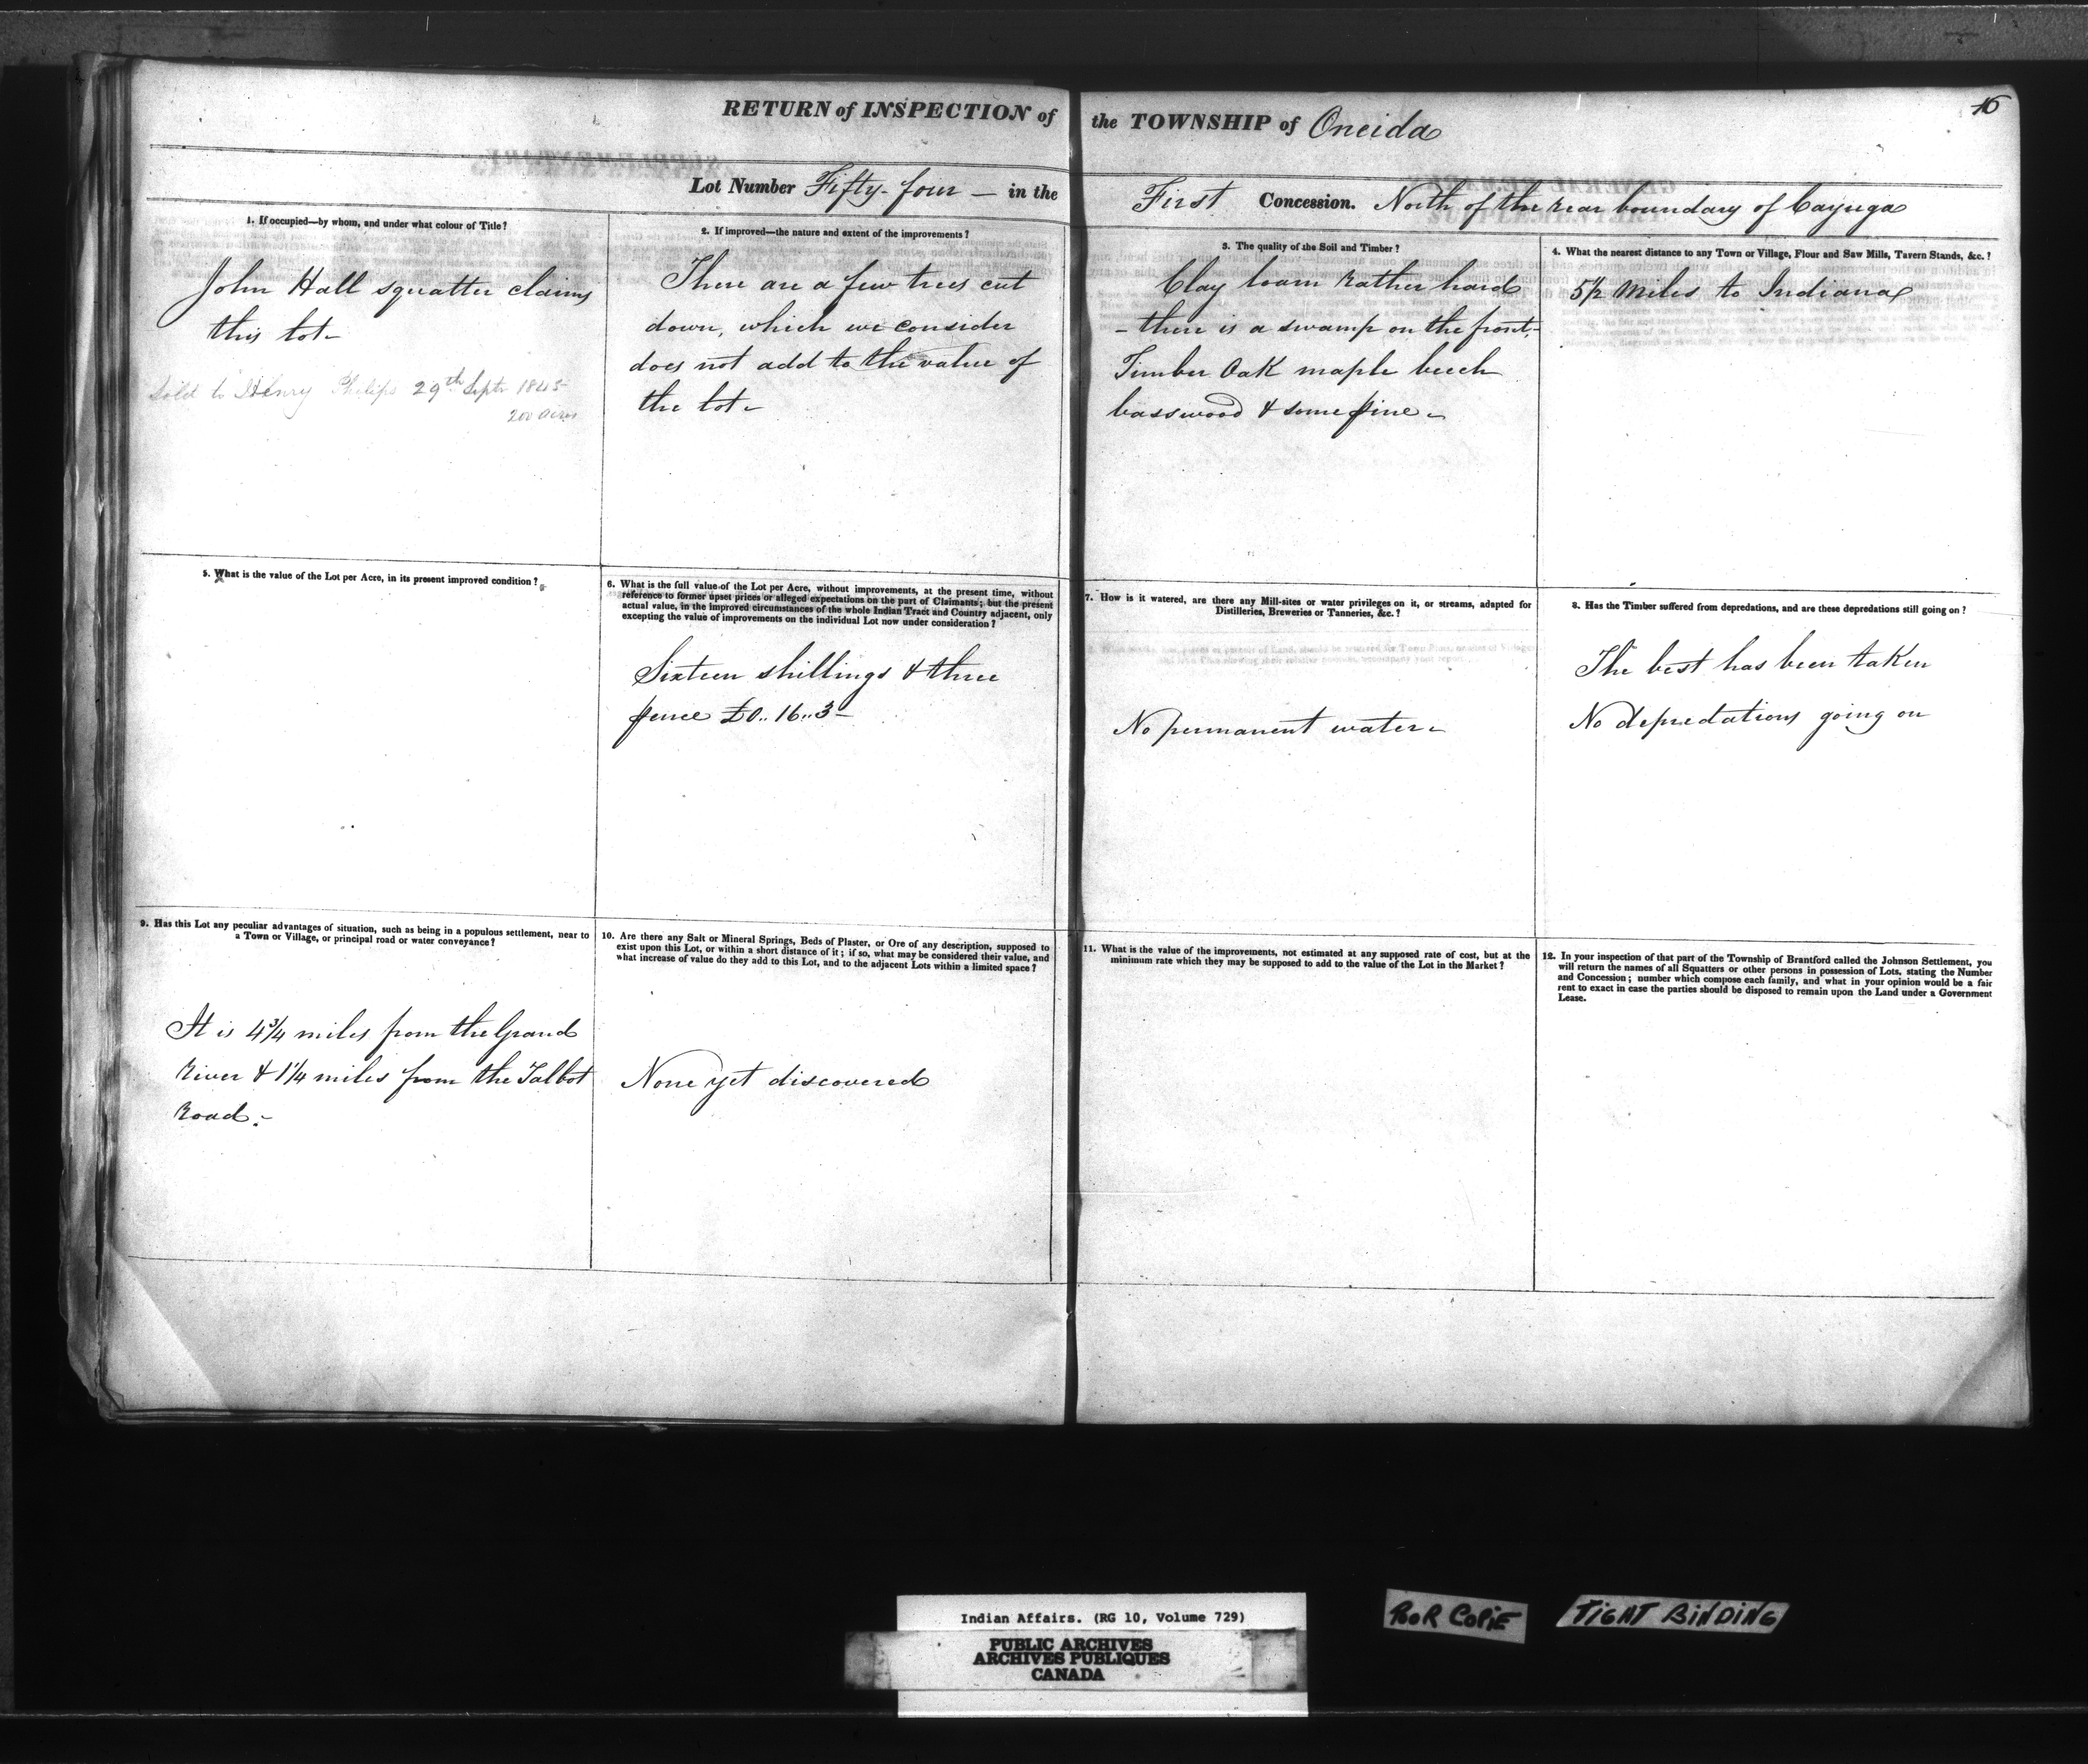 16
RETURN of INSPECTION of the TOWNSHIP of Oneida
Lot Number Fifty-four — in the First Concession. North of the rear boundary of Cayuga
1. If occupied—by whom, and under what colour of Title?
John Hall squatter claims
this lot-
Sold to Henry Philips 29th Septr 1845
200 acres
2. If improved—the nature and extent of the improvements?
There are a few trees cut
down, which we consider
does not add to the value of
the lot-
3. The quality of the Soil and Timber?
Clay loam rather hard
- there is a swamp on the front,-
Timber Oak maple beech
basswood & some pine-
4. What the nearest distance to any Town or Village, Flour and Saw Mills, Tavern Stands, &c.?
5½ Miles to Indiana
5. What is the value of the Lot per Acre, in its present improved condition?
6. What is the full value of the Lot per Acre, without improvements, at the present time, without
reference to former upset prices or alleged expectations on the part of Claimants; but the present
actual value, in the improved circumstances of the whole Indian Tract and Country adjacent, only
excepting the value of improvements on the individual Lot now under consideration?
Sixteen shillings & three
pence £0..16..3-
7. How is it watered, are there any Mill-sites or water privileges on it, or streams, adapted for
Distilleries, Breweries or Tanneries, &c.?
No permanent water-
8. Has the Timber suffered from depredations, and are these depredations still going on?
The best has been taken
No depredations going on
9. Has this Lot any peculiar advantages of situation, such as being in a populous settlement, near to
a Town or Village, or principal road or water conveyance?
It is 4¾ miles from the Grand
River & 1¼ miles from the Talbot
Road.-
10. Are there any Salt or Mineral Springs, Beds of Plaster, or Ore of any description, supposed to
exist upon this Lot, or within a short distance of it; if so, what may be considered their value, and
what increase of value do they add to this Lot, and to the adjacent Lots within a limited space?
None yet discovered
11. What is the value of the improvements, not estimated at any supposed rate of cost, but at the
minimum rate which they may be supposed to add to the value of the Lot in the Market?
12. In your inspection of that part of the Township of Brantford called the Johnson Settlement, you
will return the names of all Squatters or other persons in possession of Lots, stating the Number
and Concession; number which compose each family, and what in your opinion would be a fair
rent to exact in case the parties should be disposed to remain upon the Land under a Government
Lease.
Indian Affairs. (RG 10, Volume 729)
PUBLIC ARCHIVES
ARCHIVES PUBLIQUES
CANADA
POOR COPIE
TIGHT BINDING